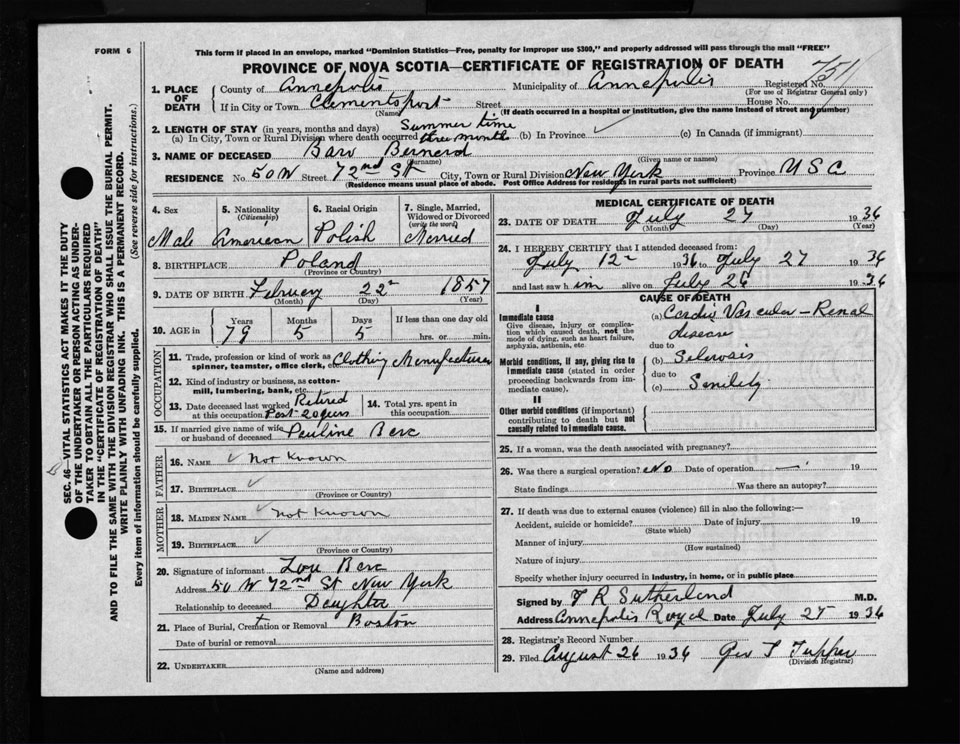 FORM 6
This form if placed in an envelope, marked "Dominion Statistics—Free, penalty for improper use $300," and properly addressed will pass through the mail "FREE"
PROVINCE OF NOVA SCOTIA—CERTIFICATE OF REGISTRATION OF DEATH
1. PLACE OF DEATH
County of Annapolis Municipality of Annapolis Registered No. 751
(For use of Registrar General only)
If in City or Town Clementsport Street House No.
(Name) (If death occurred in a hospital or institution, give the name instead of street and number)
2. LENGTH OF STAY (in years, months and days) Summer time
(a) In City, Town or Rural Division where death occurred three months (b) In Province ✓ (c) In Canada (if immigrant)
3. NAME OF DECEASED Barc Bernard
(Surname) (Given name or names)
RESIDENCE No. 50 W Street 72nd St City, Town or Rural Division New York Province USA
(Residence means usual place of abode. Post Office Address for residents in rural parts not sufficient)
4. Sex 5. Nationality (Citizenship) 6. Racial Origin 7. Single, Married, Widowed or Divorced (write the word)
Male American Polish Married
8. BIRTHPLACE Poland
(Province or Country)
9. DATE OF BIRTH February 22 1857
(Month) (Day) (Year)
10. AGE in Years Months Days If less than one day old
79 5 5 hrs. or min.
OCCUPATION
11. Trade, profession or kind of work as spinner, teamster, office clerk, etc. Clothing Manufacturer
12. Kind of industry or business, as cotton-mill, lumbering, bank, etc.
13. Date deceased last worked at this occupation Retired Past 20 years 14. Total yrs. spent in this occupation
15. If married give name of wife or husband of deceased Pauline Barc
FATHER
16. NAME ✓ Not Known
17. BIRTHPLACE ✓
(Province or Country)
MOTHER
18. MAIDEN NAME ✓ Not Known
19. BIRTHPLACE ✓
(Province or Country)
20. Signature of informant Lou Barc
Address 50 W 72nd St New York
Relationship to deceased Daughter
21. Place of Burial, Cremation or Removal Boston
Date of burial or removal
22. UNDERTAKER
(Name and address)
MEDICAL CERTIFICATE OF DEATH
23. DATE OF DEATH July 27 1936
(Month) (Day) (Year)
24. I HEREBY CERTIFY that I attended deceased from:
July 12 1936 to July 27 1936
and last saw him alive on July 26 1936
CAUSE OF DEATH
I
Immediate cause
Give disease, injury or complication which caused death, not the mode of dying, such as heart failure, asphyxia, asthenia, etc.
(a) Cardio Vascular - Renal disease
due to
Morbid conditions, if any, giving rise to immediate cause (stated in order proceeding backwards from immediate cause).
(b) Sclerosis
due to
(c) Senility
II
Other morbid conditions (if important) contributing to death but not causally related to immediate cause.
25. If a woman, was the death associated with pregnancy?
26. Was there a surgical operation? No Date of operation — 19
State findings Was there an autopsy?
27. If death was due to external causes (violence) fill in also the following:—
Accident, suicide or homicide? Date of injury 19
(State which)
Manner of injury
(How sustained)
Nature of injury
Specify whether injury occurred in industry, in home, or in public place
Signed by F R Sutherland M.D.
Address Annapolis Royal Date July 27 1936
28. Registrar's Record Number
29. Filed August 26 1936 Geo T Tupper
(Division Registrar)
SEC. 46—VITAL STATISTICS ACT MAKES IT THE DUTY
OF THE UNDERTAKER OR PERSON ACTING AS UNDER-
TAKER TO OBTAIN ALL THE PARTICULARS REQUIRED
IN THE "CERTIFICATE OF REGISTRATION OF DEATH"
AND TO FILE THE SAME WITH THE DIVISION REGISTRAR WHO SHALL ISSUE THE BURIAL PERMIT.
WRITE PLAINLY WITH UNFADING INK. THIS IS A PERMANENT RECORD.
Every item of information should be carefully supplied. (See reverse side for instructions.)